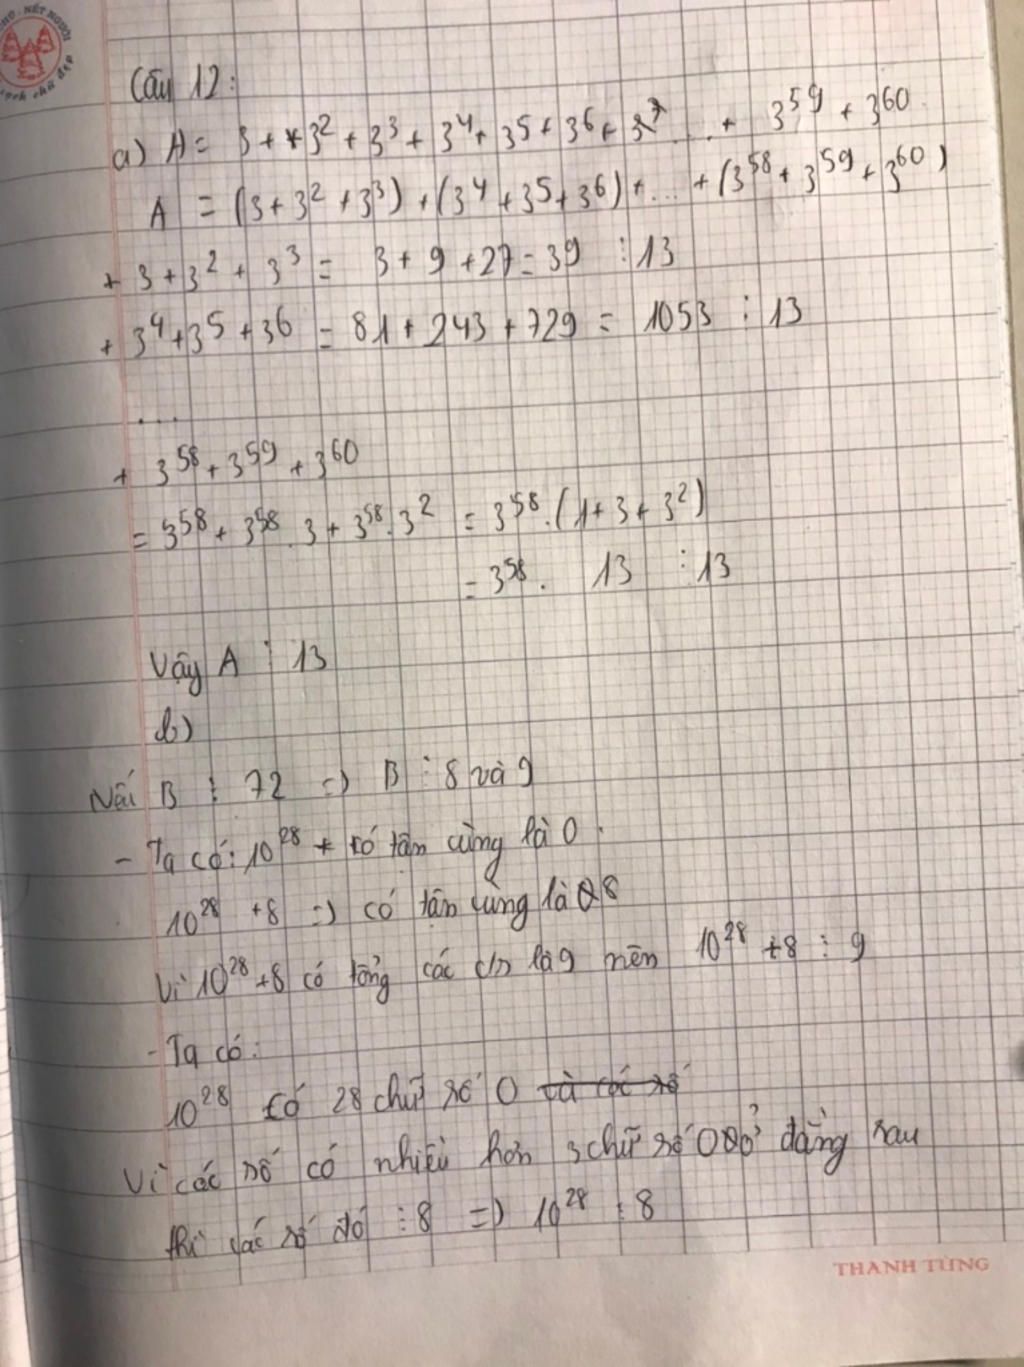 NẾT NGƯỜI
sạch chữ đẹp
Câu 12:
a) A = 3 + 3² + 3³ + 3⁴ + 3⁵ + 3⁶ + 3⁷ ... + 3⁵⁹ + 3⁶⁰
A = (3 + 3² + 3³) + (3⁴ + 3⁵ + 3⁶) + ... + (3⁵⁸ + 3⁵⁹ + 3⁶⁰)
+ 3 + 3² + 3³ = 3 + 9 + 27 = 39 ⋮ 13
+ 3⁴ + 3⁵ + 3⁶ = 81 + 243 + 729 = 1053 ⋮ 13
....
+ 3⁵⁸ + 3⁵⁹ + 3⁶⁰
= 3⁵⁸ + 3⁵⁸ . 3 + 3⁵⁸ . 3² = 3⁵⁸ . (1 + 3 + 3²)
= 3⁵⁸ . 13 ⋮ 13
Vậy A ⋮ 13
b)
Nếu B ⋮ 72 => B ⋮ 8 và 9
- Ta có: 10²⁸ có tận cùng là 0.
10²⁸ + 8 => có tận cùng là 8
Vì 10²⁸ + 8 có tổng các c/s là 9 nên 10²⁸ + 8 ⋮ 9
- Ta có:
10²⁸ có 28 chữ số 0 và các số
Vì các số có nhiều hơn 3 chữ số 0 ở đằng sau
thì các số đó ⋮ 8 => 10²⁸ ⋮ 8
THANH TÙNG